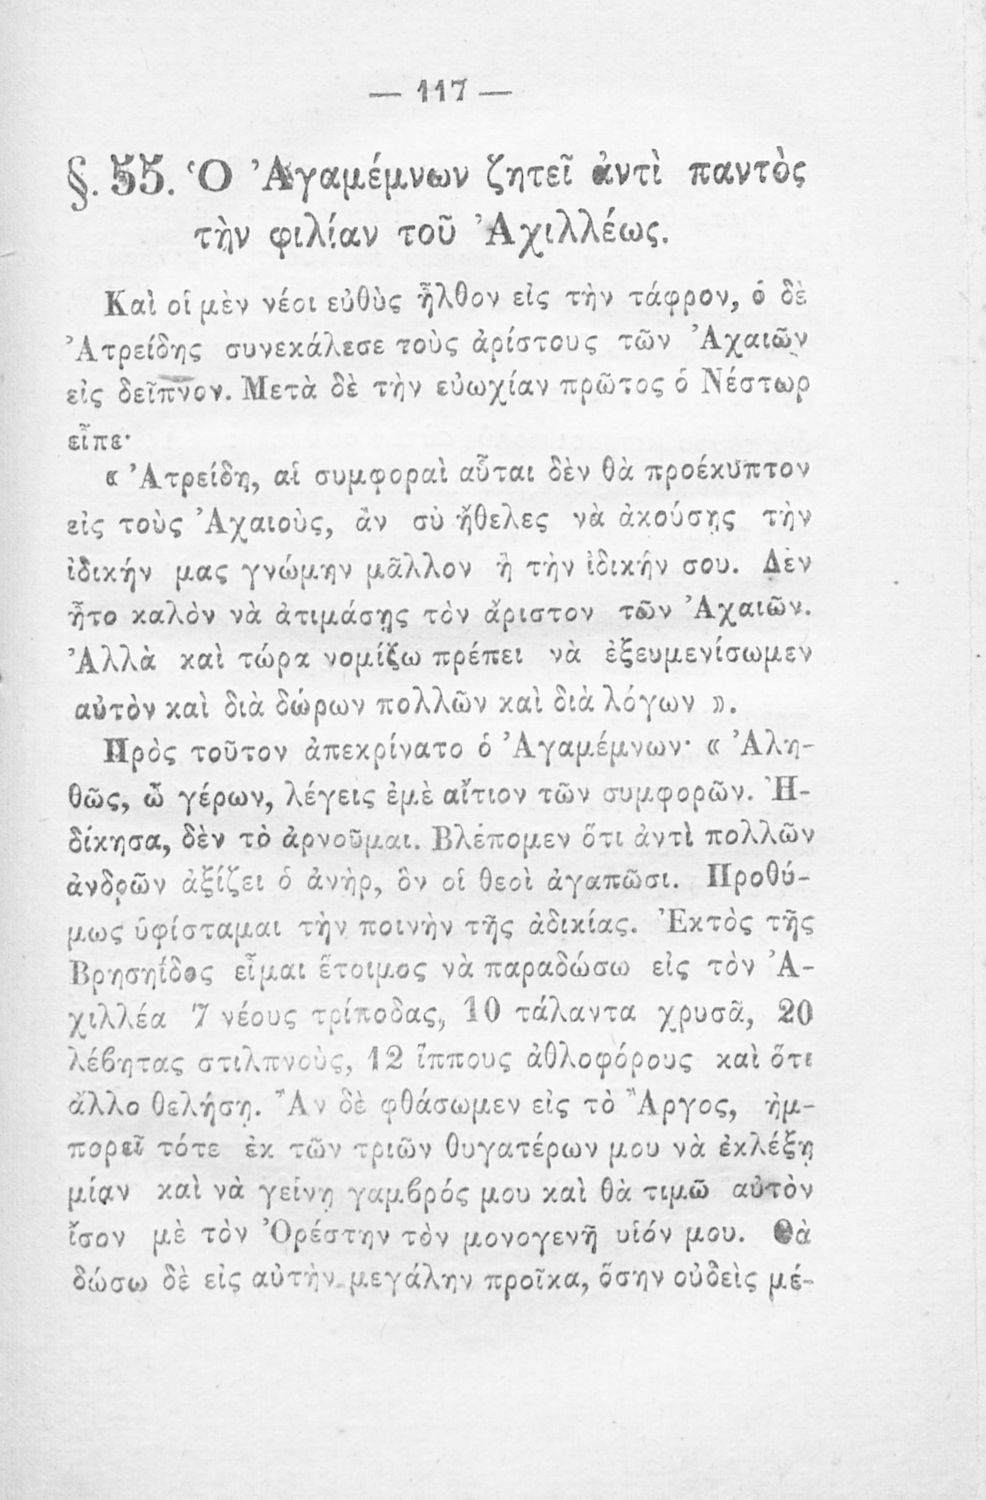 — 117 —
§. 55. Ὁ Ἀγαμέμνων ζητεῖ ἀντὶ παντὸς
τὴν φιλίαν τοῦ Ἀχιλλέως.
Καὶ οἱ μὲν νέοι εὐθὺς ἦλθον εἰς τὴν τάφρον, ὁ δὲ
Ἀτρείδης συνεκάλεσε τοὺς ἀρίστους τῶν Ἀχαιῶν
εἰς δεῖπνον. Μετὰ δὲ τὴν εὐωχίαν πρῶτος ὁ Νέστωρ
εἶπε·
« Ἀτρείδη, αἱ συμφοραὶ αὗται δὲν θὰ προέκυπτον
εἰς τοὺς Ἀχαιοὺς, ἂν σὺ ἤθελες νὰ ἀκούσῃς τὴν
ἰδικήν μας γνώμην μᾶλλον ἢ τὴν ἰδικήν σου. Δὲν
ἦτο καλὸν νὰ ἀτιμάσῃς τὸν ἄριστον τῶν Ἀχαιῶν.
Ἀλλὰ καὶ τώρα νομίζω πρέπει νὰ ἐξευμενίσωμεν
αὐτὸν καὶ διὰ δώρων πολλῶν καὶ διὰ λόγων ».
Πρὸς τοῦτον ἀπεκρίνατο ὁ Ἀγαμέμνων· « Ἀλη-
θῶς, ὦ γέρων, λέγεις ἐμὲ αἴτιον τῶν συμφορῶν. Ἠ-
δίκησα, δὲν τὸ ἀρνοῦμαι. Βλέπομεν ὅτι ἀντὶ πολλῶν
ἀνδρῶν ἀξίζει ὁ ἀνὴρ, ὃν οἱ θεοὶ ἀγαπῶσι. Προθύ-
μως ὑφίσταμαι τὴν ποινὴν τῆς ἀδικίας. Ἐκτὸς τῆς
Βρησηΐδος εἶμαι ἕτοιμος νὰ παραδώσω εἰς τὸν Ἀ-
χιλλέα 7 νέους τρίποδας, 10 τάλαντα χρυσᾶ, 20
λέβητας στιλπνοὺς, 12 ἵππους ἀθλοφόρους καὶ ὅτι
ἄλλο θελήσῃ. Ἂν δὲ φθάσωμεν εἰς τὸ Ἄργος, ἠμ-
πορεῖ τότε ἐκ τῶν τριῶν θυγατέρων μου νὰ ἐκλέξῃ
μίαν καὶ νὰ γείνῃ γαμβρός μου καὶ θὰ τιμῶ αὐτὸν
ἴσον μὲ τὸν Ὀρέστην τὸν μονογενῆ υἱόν μου. Θὰ
δώσω δὲ εἰς αὐτὴν μεγάλην προῖκα, ὅσην οὐδεὶς μέ-